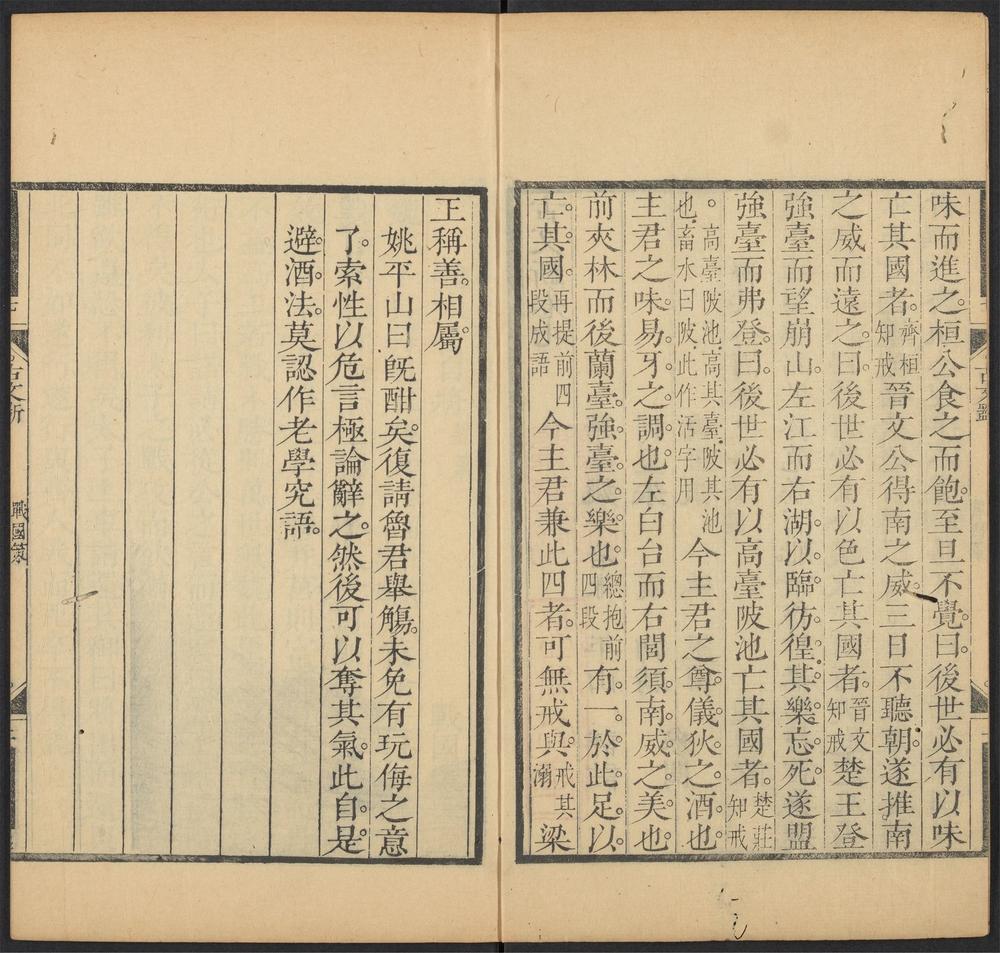 味而進之。桓公食之而飽。至旦不覺。曰。後世必有以味
亡其國者。齊桓知戒晉文公得南之威。三日不聽朝。遂推南
之威而遠之。曰。後世必有以色亡其國者。晉文知戒楚王登
強臺而望崩山。左江而右湖。以臨彷徨。其樂忘死。遂盟
強臺而弗登。曰。後世必有以高臺陂池亡其國者。楚莊知戒
。高臺陂池。高其臺。陂其池也。畜水曰陂。此作活字用今主君之尊。儀狄之酒也。
主君之味。易牙之調也。左白台而右閭須。南威之美也。
前夾林而後蘭臺。強臺之樂也。總抱前四段有一於此。足以
亡其國。再提前四段成語今主君兼此四者。可無戒與。戒其溺梁
王稱善相屬。
姚平山曰旣酣矣。復請魯君舉觴。未免有玩侮之意
了。索性以危言極論辭之。然後可以奪其氣。此自是
避酒法。莫認作老學究語。
戰國策